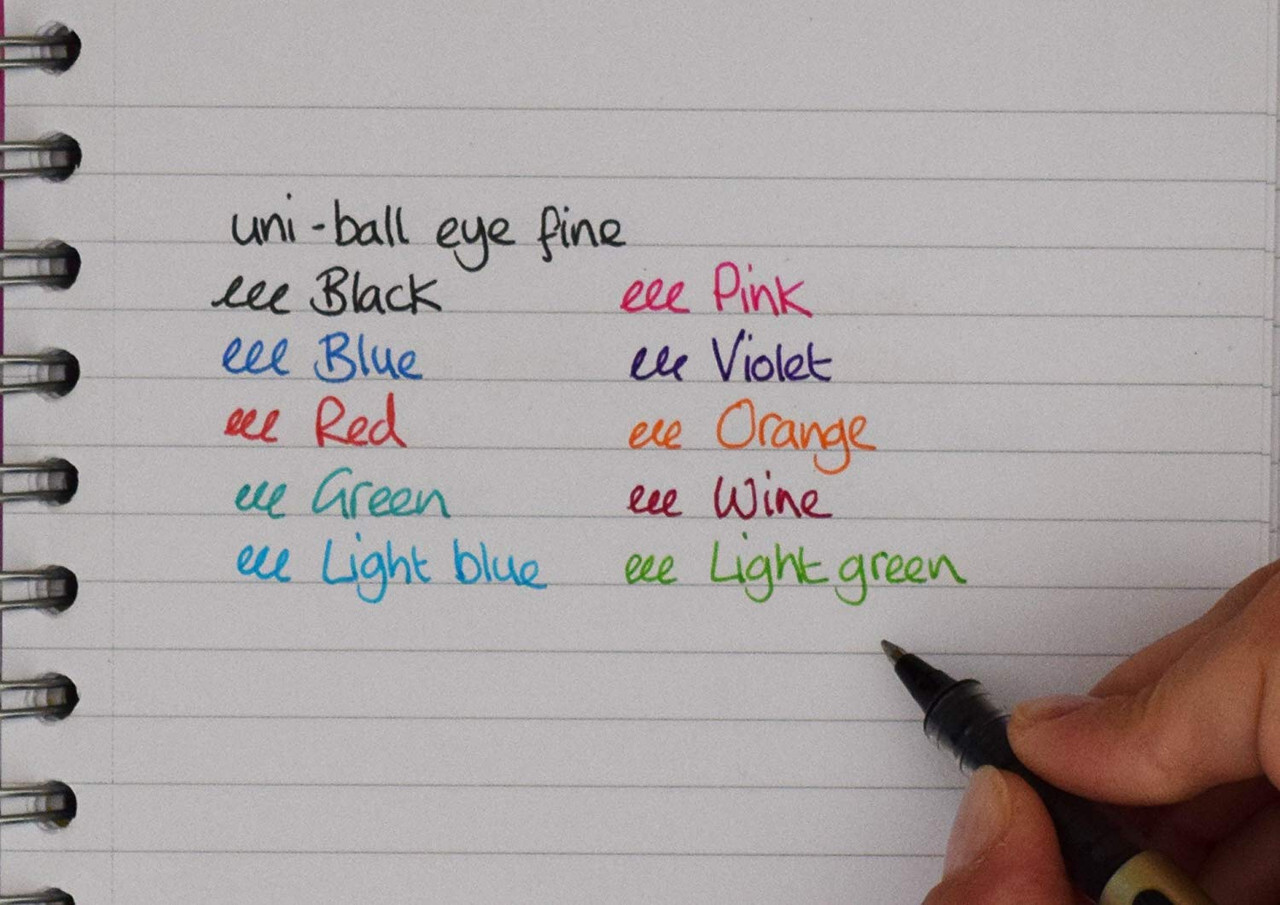 uni-ball eye fine
eee Black
eee Blue
eee Red
eee Green
eee Light blue
eee Pink
eee Violet
eee Orange
eee Wine
eee Light green